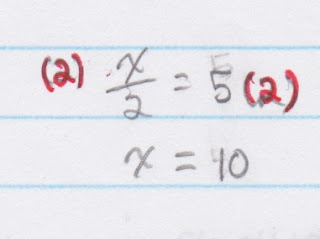 (2) x/2 = 5 (2)
x = 10